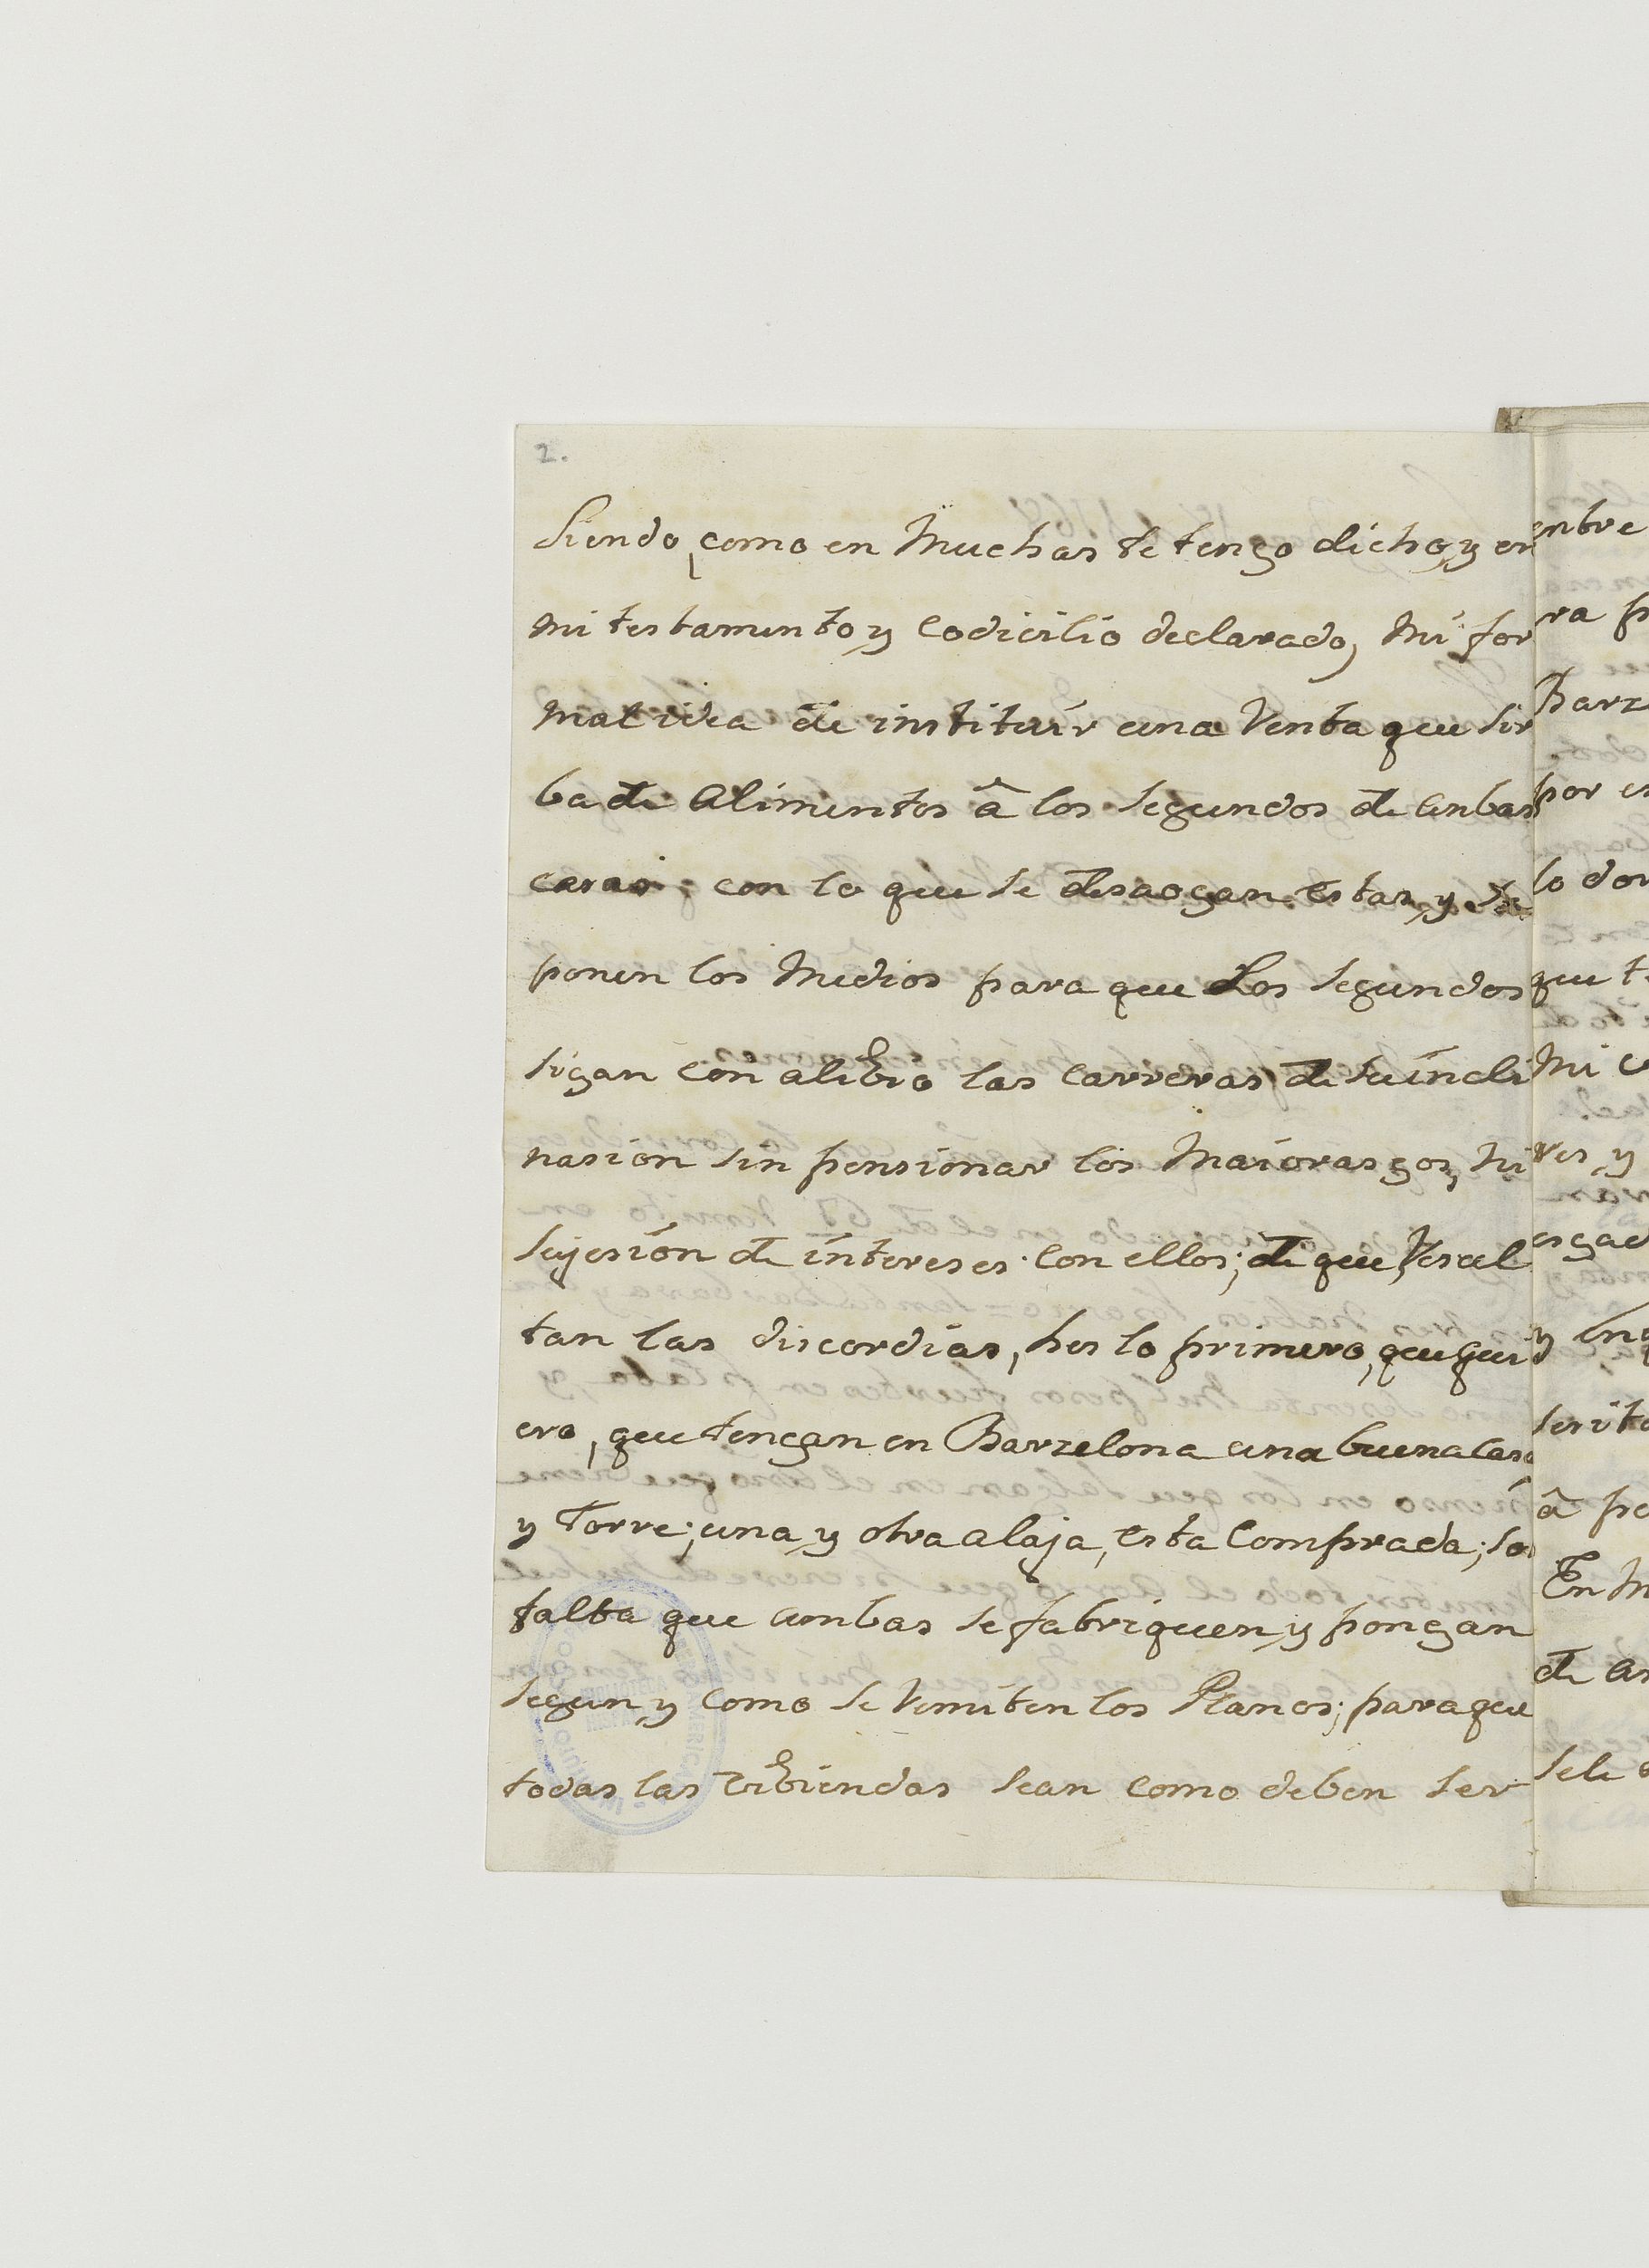 2.
Siendo, como en Muchas te tengo dicho, y en
mi testamento, y Codicilio declarado, Mi for
mal idea de instituír una Renta que Sir
ba de Alimentos â los Segundos de anbas
casas; con lo que se desaogan estas, y se
ponen los Medios para que Los Segundos
sigan con alibio las Carreras de su índi
nasion sin pensionar los Maiorasgos, ni
sujesión de íntereses con ellos; de que, Resul
tan las discordias, hes lo primero, que qui
ero, que tengan en Barzelona una buena Casa
y Torre; una, y otra alaja, esta Comprada; so
falta que ambas se fabriquen, y pongan
segun, y como se Remiten los Planos; para que
todas las bibiendas sean como deben ser
enbre
ra p
Barz
por es
lo don
que t
Mi c
res, y
esgad
y
serito
â pe
En M
de as
sele